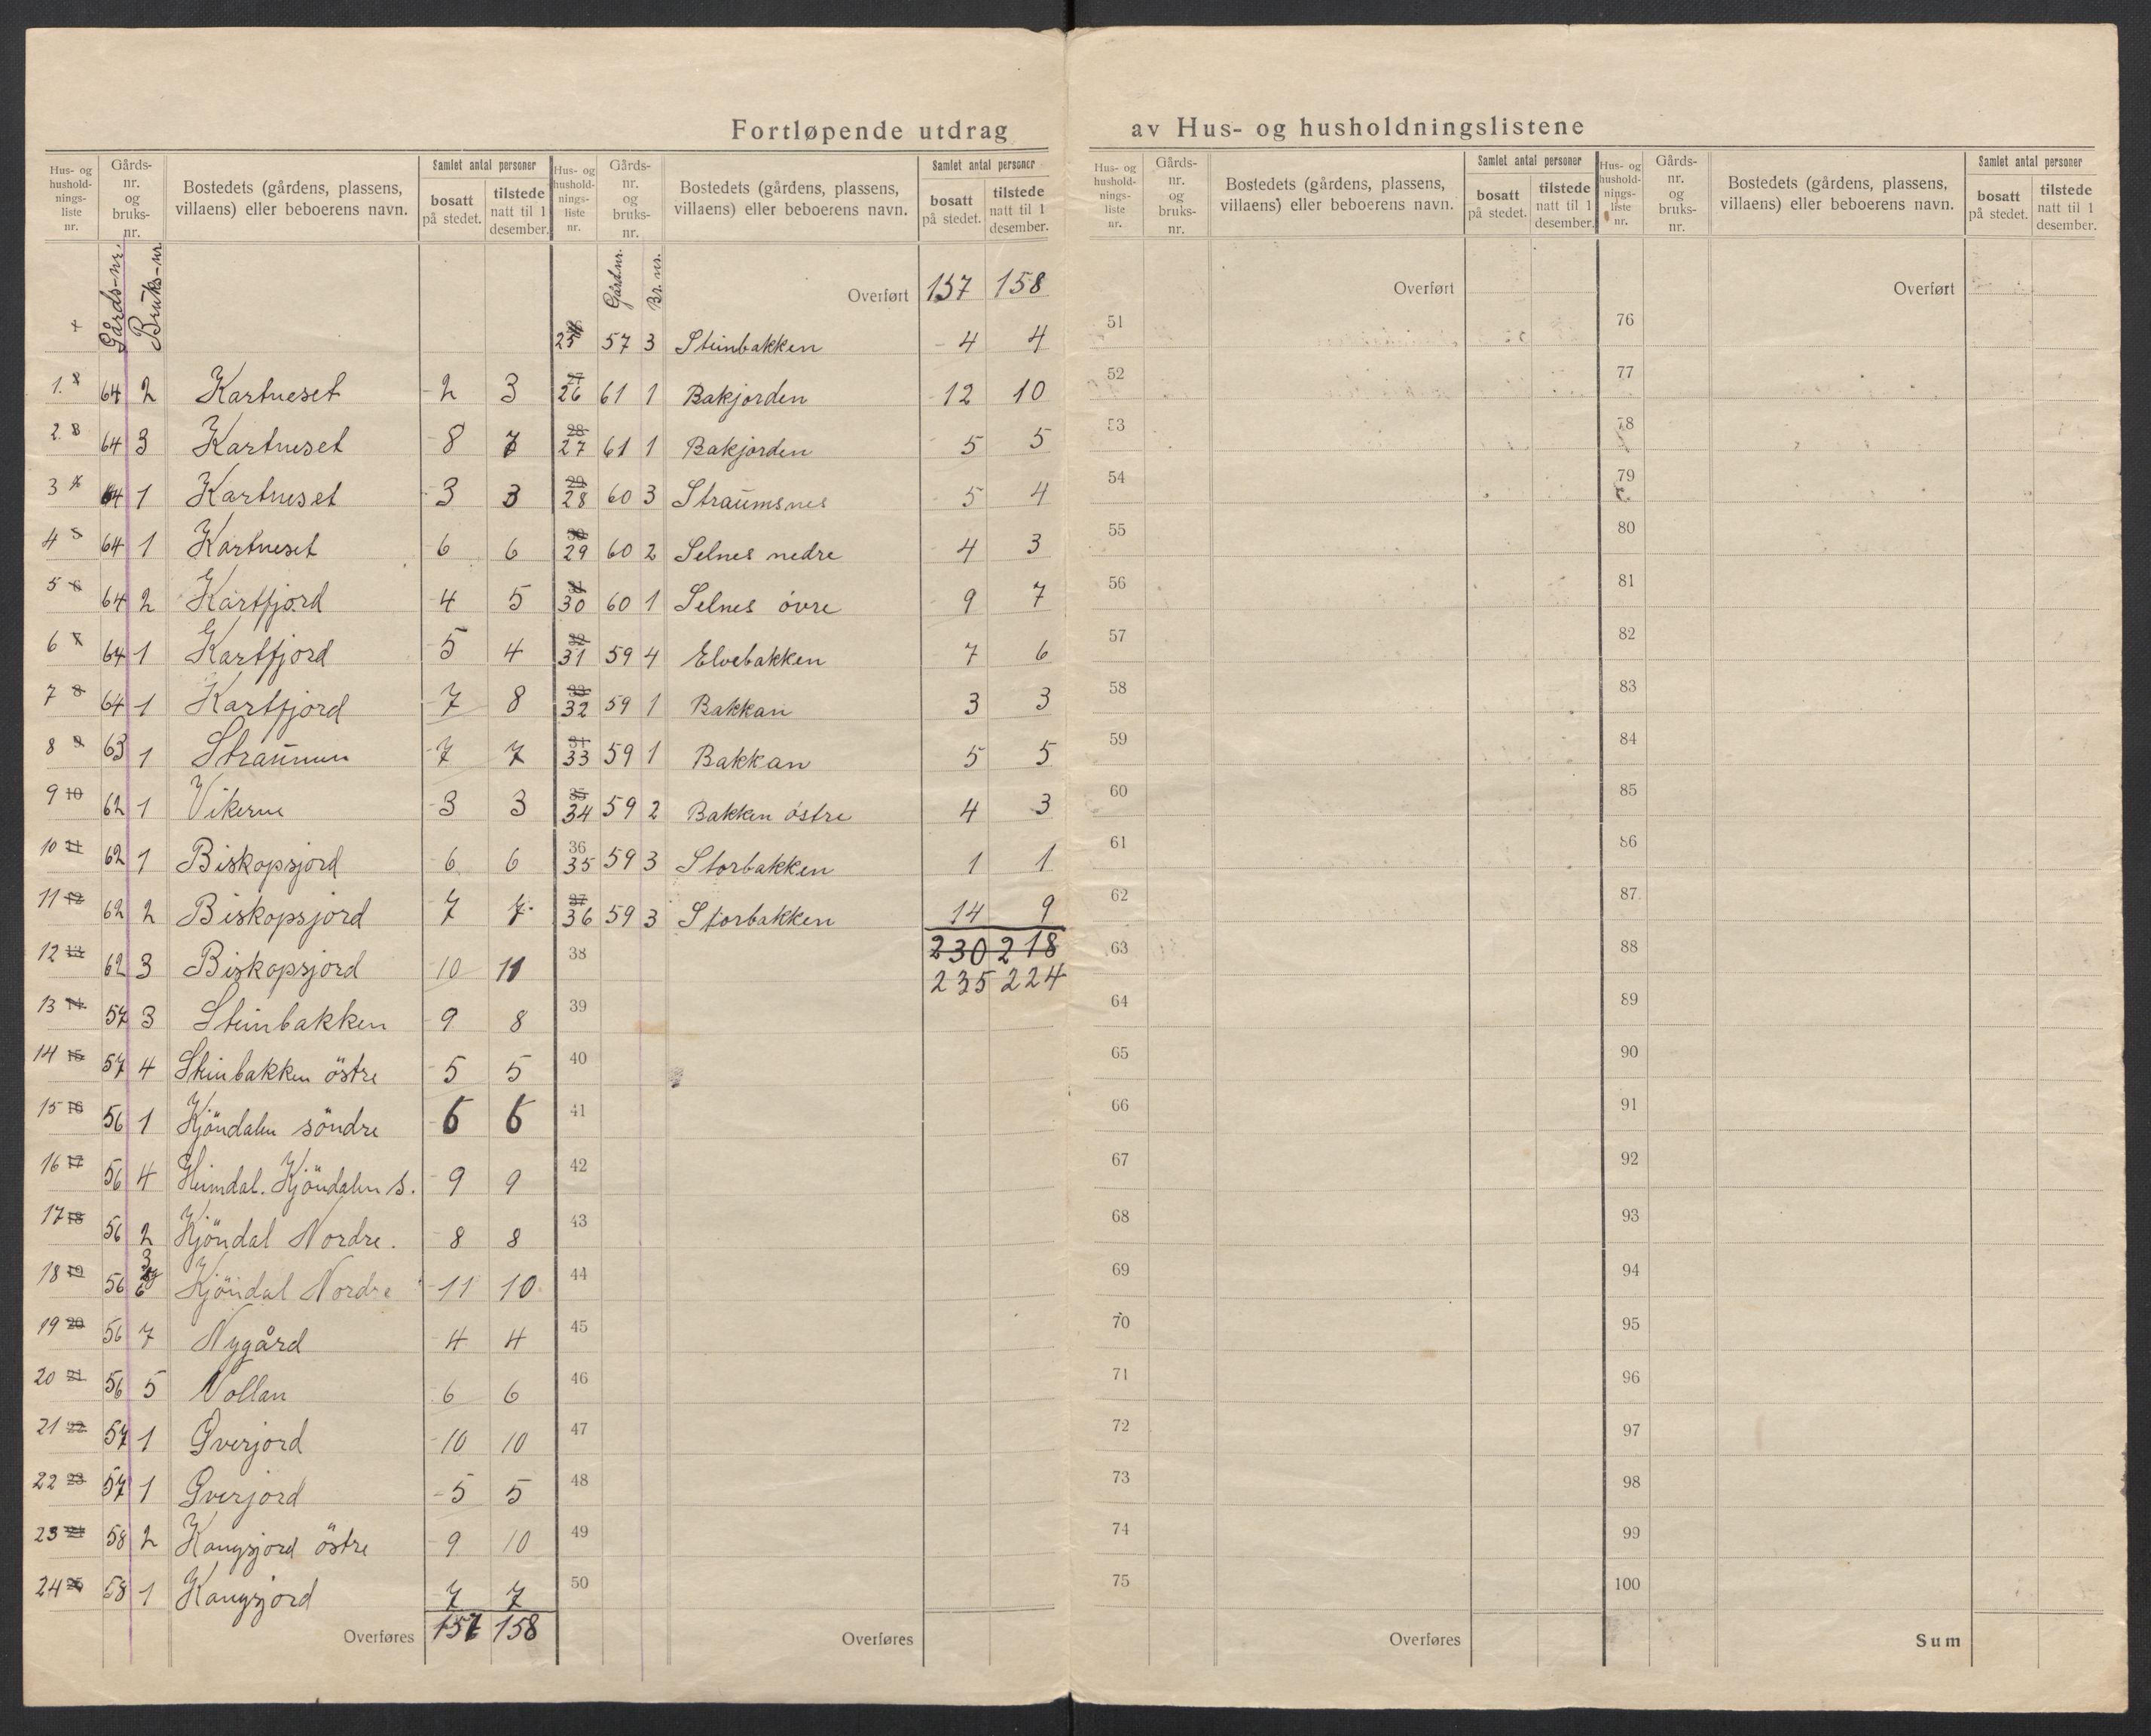 Fortløpende utdrag av Hus- og husholdningslistene
Hus- og husholdnings-liste nr. | Gårds-nr. og bruks-nr. | Bostedets (gårdens, plassens, villaens) eller beboerens navn. | Samlet antal personer | bosatt på stedet. | tilstede natt til 1 desember.
Gårds-nr. Bruks-nr
1. 64 2 Kartneset 2 3
2. 64 3 Kartneset 8 7
3 64 1 Kartneset 3 3
4 64 1 Kartneset 6 6
5 64 2 Kartfjord 4 5
6 64 1 Kartfjord 5 4
7 64 1 Kartfjord 7 8
8 63 1 Straumen 7 7
9 10 62 1 Vikerne 3 3
10 11 62 1 Biskopsjord 6 6
11 12 62 2 Biskopsjord 7 7
12 13 62 3 Biskopsjord 10 11
13 14 57 3 Steinbakken 9 8
14 15 57 4 Steinbakken östre 5 5
15 16 56 1 Kjöndalen söndre 6 6
16 17 56 4 Heimdal. Kjöndalen s. 9 9
17 18 56 2 Kjöndal Nordre. 8 8
18 19 56 3 6 Kjöndal Nordre 11 10
19 20 56 7 Nygård 4 4
20 21 56 5 Vollan 6 6
21 22 57 1 Överjord 10 10
22 23 57 1 Överjord 5 5
23 24 58 2 Kangsjord östre 9 10
24 25 58 1 Kangsjord 7 7
Overføres 157 158
Hus- og husholdnings-liste nr. | Gårds-nr. og bruks-nr. | Bostedets (gårdens, plassens, villaens) eller beboerens navn. | Samlet antal personer | bosatt på stedet. | tilstede natt til 1 desember.
Gårdsnr. Br. nr.
Overført 157 158
25 57 3 Steinbakken 4 4
27 26 61 1 Bakjorden 12 10
28 27 61 1 Bakjorden 5 5
29 28 60 3 Straumsnes 5 4
30 29 60 2 Selnes nedre 4 3
31 30 60 1 Selnes övre 9 7
32 31 59 4 Elvebakken 7 6
33 32 59 1 Bakkan 3 3
34 33 59 1 Bakkan 5 5
35 34 59 2 Bakken östre 4 3
36 35 59 3 Storbakken 1 1
37 36 59 3 Storbakken 14 9
38 230 218
235 224
39
40
41
42
43
44
45
46
47
48
49
50
Overføres
Hus- og husholdnings-liste nr. | Gårds-nr. og bruks-nr. | Bostedets (gårdens, plassens, villaens) eller beboerens navn. | Samlet antal personer | bosatt på stedet. | tilstede natt til 1 desember.
Overført
51
52
53
54
55
56
57
58
59
60
61
62
63
64
65
66
67
68
69
70
71
72
73
74
75
Overføres
Hus- og husholdnings-liste nr. | Gårds-nr. og bruks-nr. | Bostedets (gårdens, plassens, villaens) eller beboerens navn. | Samlet antal personer | bosatt på stedet. | tilstede natt til 1 desember.
Overført
76
77
78
79
80
81
82
83
84
85
86
87
88
89
90
91
92
93
94
95
96
97
98
99
100
Sum